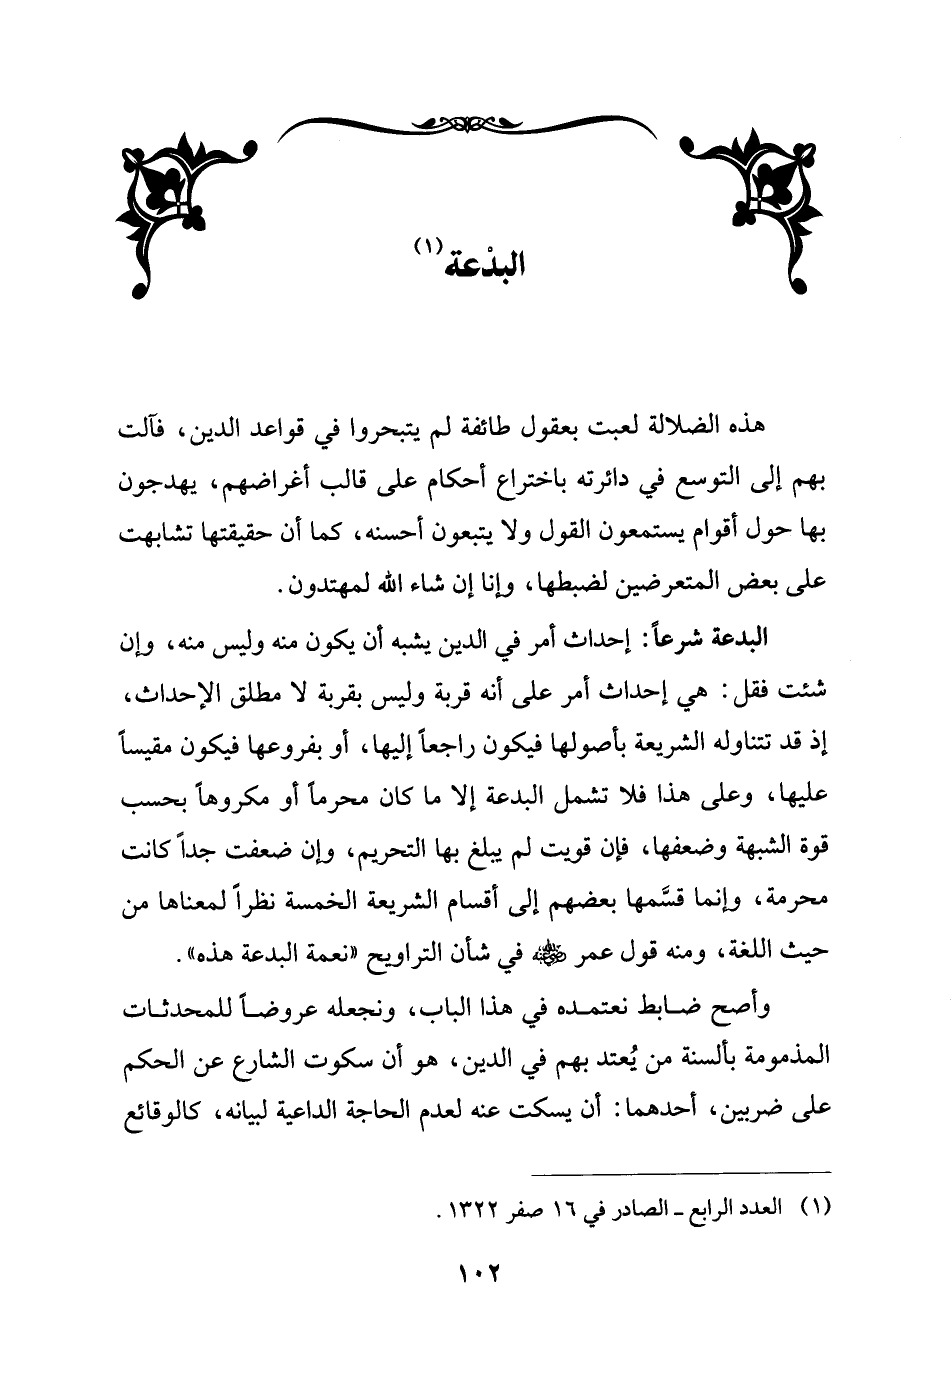 البدْعة (١)
هذه الضلالة لعبت بعقول طائفة لم يتبحروا في قواعد الدين، فآلت
بهم إلى التوسع في دائرته باختراع أحكام على قالب أغراضهم، يهدجون
بها حول أقوام يستمعون القول ولا يتبعون أحسنه، كما أن حقيقتها تشابهت
على بعض المتعرضين لضبطها، وإنا إن شاء الله لمهتدون.
البدعة شرعاً: إحداث أمر في الدين يشبه أن يكون منه وليس منه، وإن
شئت فقل: هي إحداث أمر على أنه قربة وليس بقربة لا مطلق الإحداث،
إذ قد تتناوله الشريعة بأصولها فيكون راجعاً إليها، أو بفروعها فيكون مقيساً
عليها، وعلى هذا فلا تشمل البدعة إلا ما كان محرماً أو مكروهاً بحسب
قوة الشبهة وضعفها، فإن قويت لم يبلغ بها التحريم، وإن ضعفت جداً كانت
محرمة، وإنما قسَّمها بعضهم إلى أقسام الشريعة الخمسة نظراً لمعناها من
حيث اللغة، ومنه قول عمر رضي الله عنه في شأن التراويح «نعمة البدعة هذه».
وأصح ضابط نعتمده في هذا الباب، ونجعله عروضاً للمحدثات
المذمومة بألسنة من يُعتد بهم في الدين، هو أن سكوت الشارع عن الحكم
على ضربين، أحدهما: أن يسكت عنه لعدم الحاجة الداعية لبيانه، كالوقائع
(١) العدد الرابع ـ الصادر في ١٦ صفر ١٣٢٢.
١٠٢